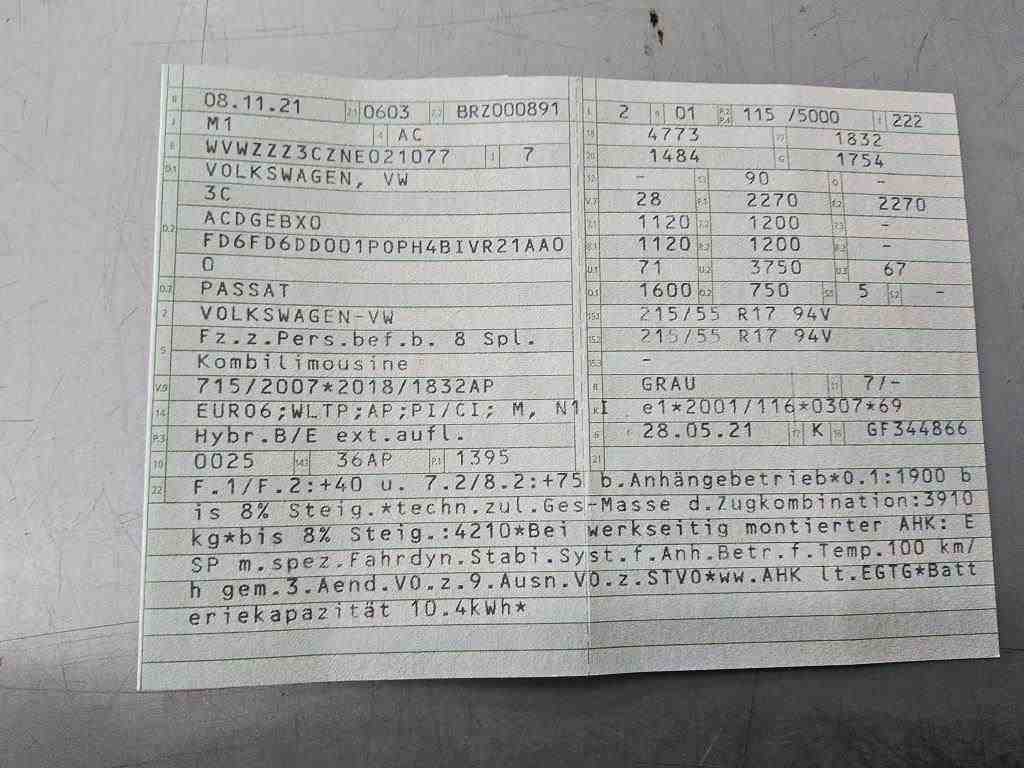 B 08.11.21 2.1 0603 2.2 BRZ000891
J M1 4 AC
E WVWZZZ3CZNE021077 3 7
D.1 VOLKSWAGEN, VW
3C
D.2 ACDGEBX0
FD6FD6DD001P0PH4BIVR21AA0
0
D.3 PASSAT
2 VOLKSWAGEN-VW
5 Fz.z.Pers.bef.b. 8 Spl.
Kombilimousine
V.9 715/2007*2018/1832AP
14 EURO6;WLTP;AP;PI/CI; M, N1 I
P.3 Hybr.B/E ext.aufl.
10 0025 14.1 36AP P.1 1395
L 2 9 01 P.2 P.4 115 /5000 T 222
18 4773 19 1832
20 1484 G 1754
12 - 13 90 Q -
V.7 28 F.1 2270 F.2 2270
7.1 1120 7.2 1200 7.3 -
8.1 1120 8.2 1200 8.3 -
U.1 71 U.2 3750 U.3 67
O.1 1600 O.2 750 S.1 5 S.2 -
15.1 215/55 R17 94V
15.2 215/55 R17 94V
15.3 -
R GRAU 11 7/-
K e1*2001/116*0307*69
6 28.05.21 17 K 16 GF344866
21
22 F.1/F.2:+40 u. 7.2/8.2:+75 b.Anhängebetrieb*0.1:1900 b
is 8% Steig.*techn.zul.Ges-Masse d.Zugkombination:3910
kg*bis 8% Steig.:4210*Bei werkseitig montierter AHK: E
SP m.spez.Fahrdyn.Stabi.Syst.f.Anh.Betr.f.Temp.100 km/
h gem.3.Aend.VO.z.9.Ausn.VO.z.STVO*ww.AHK lt.EGTG*Batt
eriekapazität 10.4kWh*